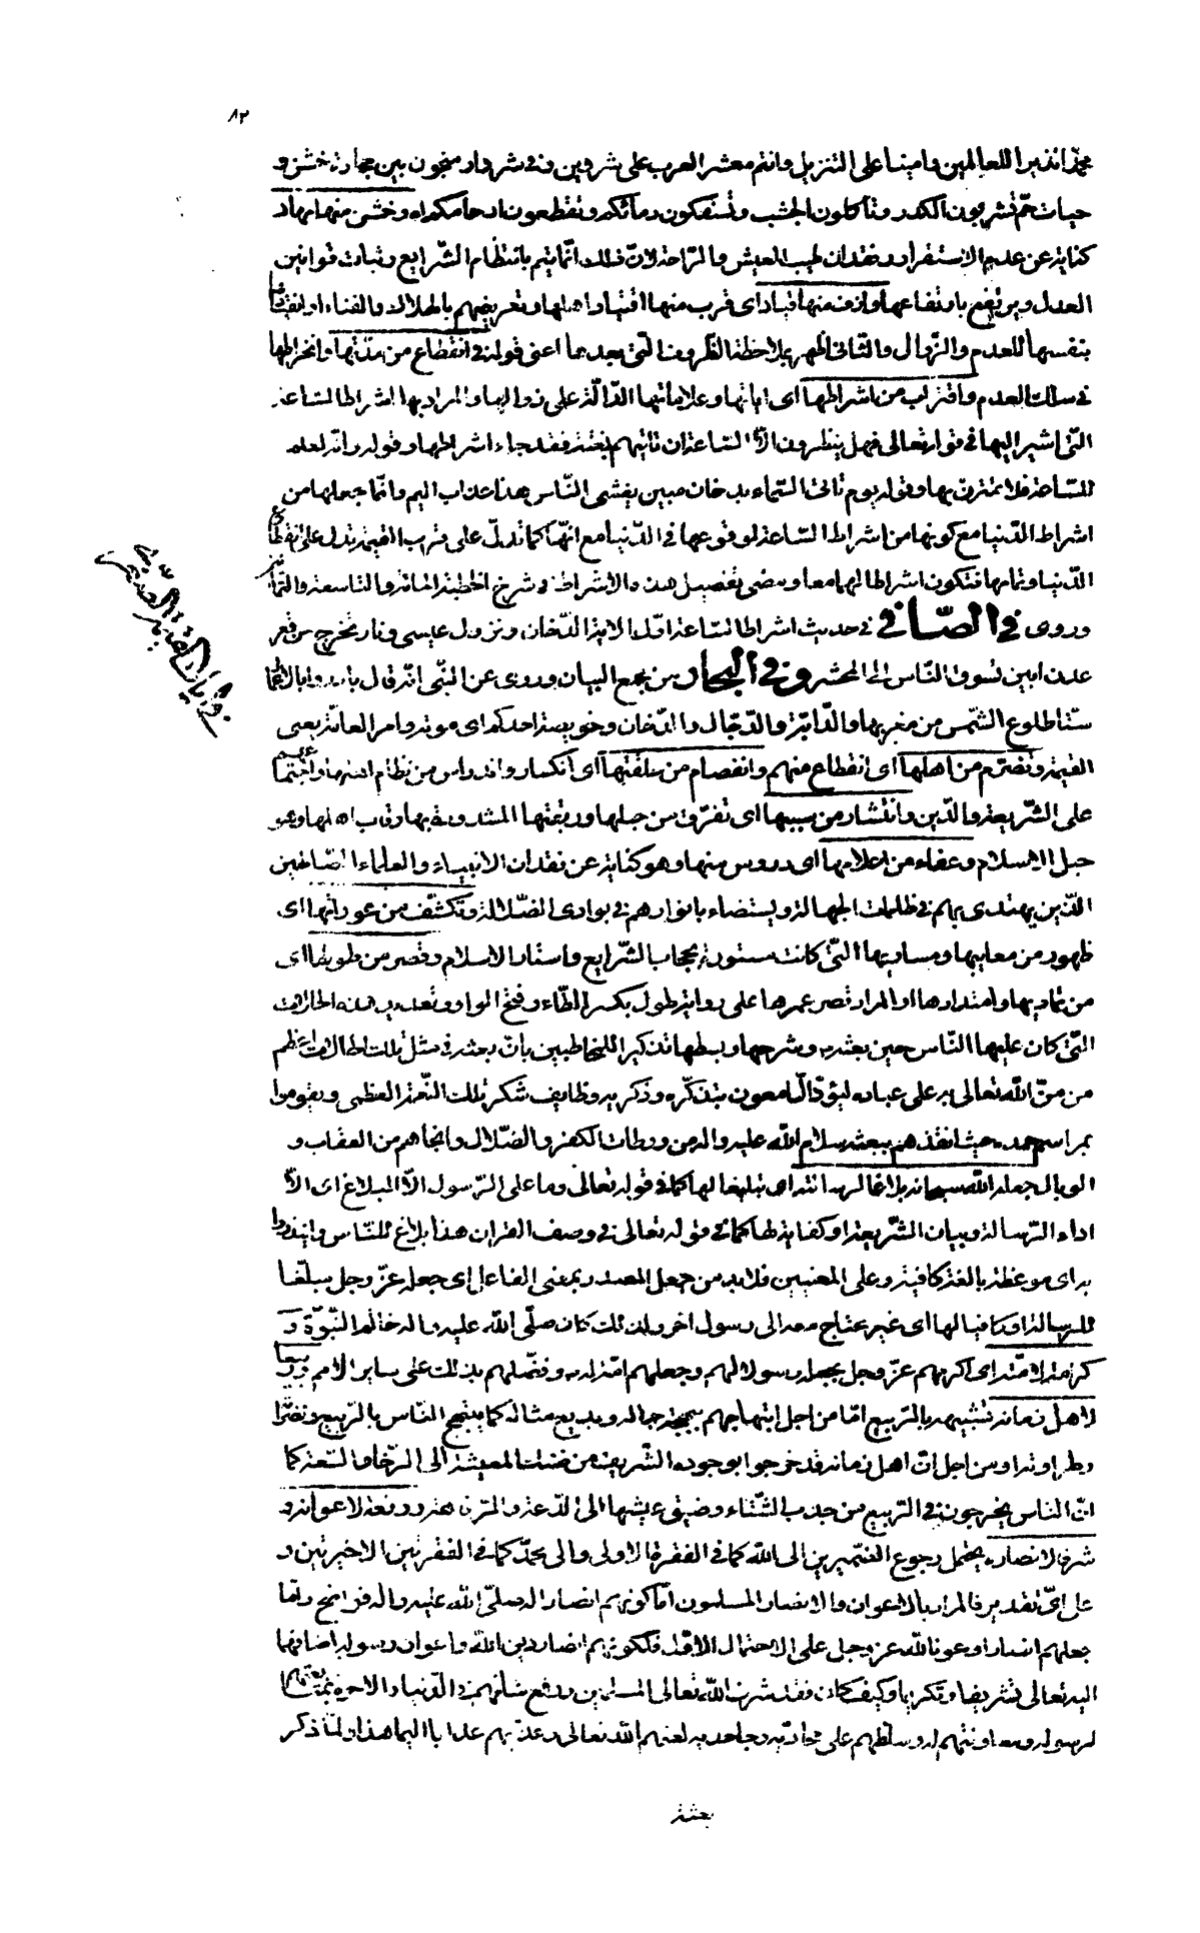 ٨٢
محمدا نذيرا للعالمين وامينا على التنزيل وانتم معشر العرب على شر دين وفى شر دار منيخون بين حجارة خشن و
حيات صم تشربون الكدر وتأكلون الجشب وتسفكون دمائكم وتقطعون ارحامكم اه وخشن منها مهاد
كناية عن عدم الاستقرار وفقدان طيب العيش والراحة لان ذلك انما يتم بانتظام الشرايع وثبات قوانين
العدل ويرتفع بارتفاعها وازف منها قياد اى قرب منها انقياد اهلها وتعريضهم بالهلاك والفناء او انقيادها
بنفسها للعدم والزوال والثانى اظهر بملاحظة الظروف التى بعدها اعنى قوله فى انقطاع من مدتها وانخراطها
فى سلك العدم واقتراب من اشراطها اى اياتها وعلاماتها الدالة على زوالها والمراد بها اشراط الساعة
التى اشير اليها فى قوله تعالى فهل ينظرون الا الساعة ان تاتيهم بغتة فقد جاء اشراطها وقوله وانه لعلم
للساعة فلا تمترن بها وقوله يوم تاتى السماء بدخان مبين يغشى الناس هذا عذاب اليم وانما جعلها من
اشراط الدنيا مع كونها من اشراط الساعة لوقوعها فى الدنيا مع انها كما تدل على قرب القيمة تدل على انقطاع
الدنيا وتمامها فتكون اشراطا لهما معا ومضى تفصيل هذه الاشراط فى شرح الخطبة المائة والتاسعة والثمانين
وروى فى الصافى فى حديث اشراط الساعة اول الايات الدخان ونزول عيسى ونار تخرج من قعر
عدن ابين تسوق الناس الى المحشر وفى البحار من مجمع البيان وروى عن النبى انه قال بادروا بالاعمال
ستا طلوع الشمس من مغربها والدابة والدجال والدخان وخويصة احدكم اى موته وامر العامة يعنى
القيمة وتصرم من اهلها اى انقطاع منهم وانفصام من حلقتها اى انكسار واندراس من نظام اهلها واجتماعهم
على الشريعة والدين وانتشار من سببها اى تفرق من حبلها وربقتها المشدودة بها رقاب اهلها وهو
حبل الاسلام وعفاء من اعلامها اى دروس منها وهو كناية عن فقدان الانبياء والعلماء الصالحين
الذين يهتدى بهم فى ظلمات الجهالة ويستضاء بانوارهم فى بوادى الضلالة وتكشف من عوراتها اى
ظهور من معايبها ومساويها التى كانت مستورة بحجاب الشرايع واستار الاسلام وقصر من طولها اى
من تماديها وامتدادها او المراد قصر عمرها على رواية طول بكسر الطاء وفتح الواو وتعديد هذه الحالات
التى كان عليها الناس حين بعثه وشرحها وبسطها تذكيرا للمخاطبين بان بعثه فى مثل تلك الحال من اعظم
من من الله تعالى به على عباده ليؤد السامعون بتذكره وذكر به وظايف شكر تلك النعمة العظمى ويقوموا
بمراسم حمده حيث انقذهم ببعثه سلام الله عليه واله من ورطات الكفر والضلال وانجاهم من العقاب و
الوبال جعله الله سبحانه بلاغا لرسالته اى تبليغا لها كما فى قوله تعالى وما على الرسول الا البلاغ اى الا
اداء الرسالة وبيان الشريعة او كفاية لها كما فى قوله تعالى فى وصف القران هذا بلاغ للناس ولينذروا
به اى موعظة بالغة كافية وعلى المعنيين فلا بد من جعل المصدر بمعنى الفاعل اى جعله عز وجل مبلغا
للرسالة او كافيا لها اى غير محتاج معه الى رسول اخر ولذلك كان صلى الله عليه واله خاتم النبوة و
كرامة لامته اى اكرمهم عز وجل بجعله رسولا لهم وجعلهم امة له وفضلهم بذلك على ساير الامم وربيعا
لاهل زمانه تشبيهه بالربيع اما من اجل ابتهاجهم ببهجة جماله وبديع مثاله كما يبتهج الناس بالربيع ونضرته
وطراوته او من اجل ان اهل زمانه قد خرجوا بوجوده الشريف من ضنك المعيشة الى الرخاء والسعة كما
ان الناس يخرجون فى الربيع من جدب الشتاء وضيق عيشها الى الدعة والترفه ورفعة لاعوانه و
شرفا لانصاره يحتمل رجوع الضميرين الى الله كما فى الفقرة الاولى والى محمد كما فى الفقرتين الاخيرتين و
على اى تقدير فالمراد بالاعوان والانصار المسلمون اما كونهم انصارا له صلى الله عليه واله فواضح واما
جعلهم انصارا وعونا لله عز وجل على الاحتمال الاول فلكونهم انصار دين الله واعوان رسوله اضافهما
اليه تعالى تشريفا وتكريما وكيف كان فقد شرف الله تعالى المسلمين ورفع شأنهم فى الدنيا والاخرة بمتابعتهم
لرسوله ومعاونتهم له وسلطهم على محاديه وجاحديه لعنهم الله تعالى وعذبهم عذابا اليما هذا ولما ذكر
بعثته